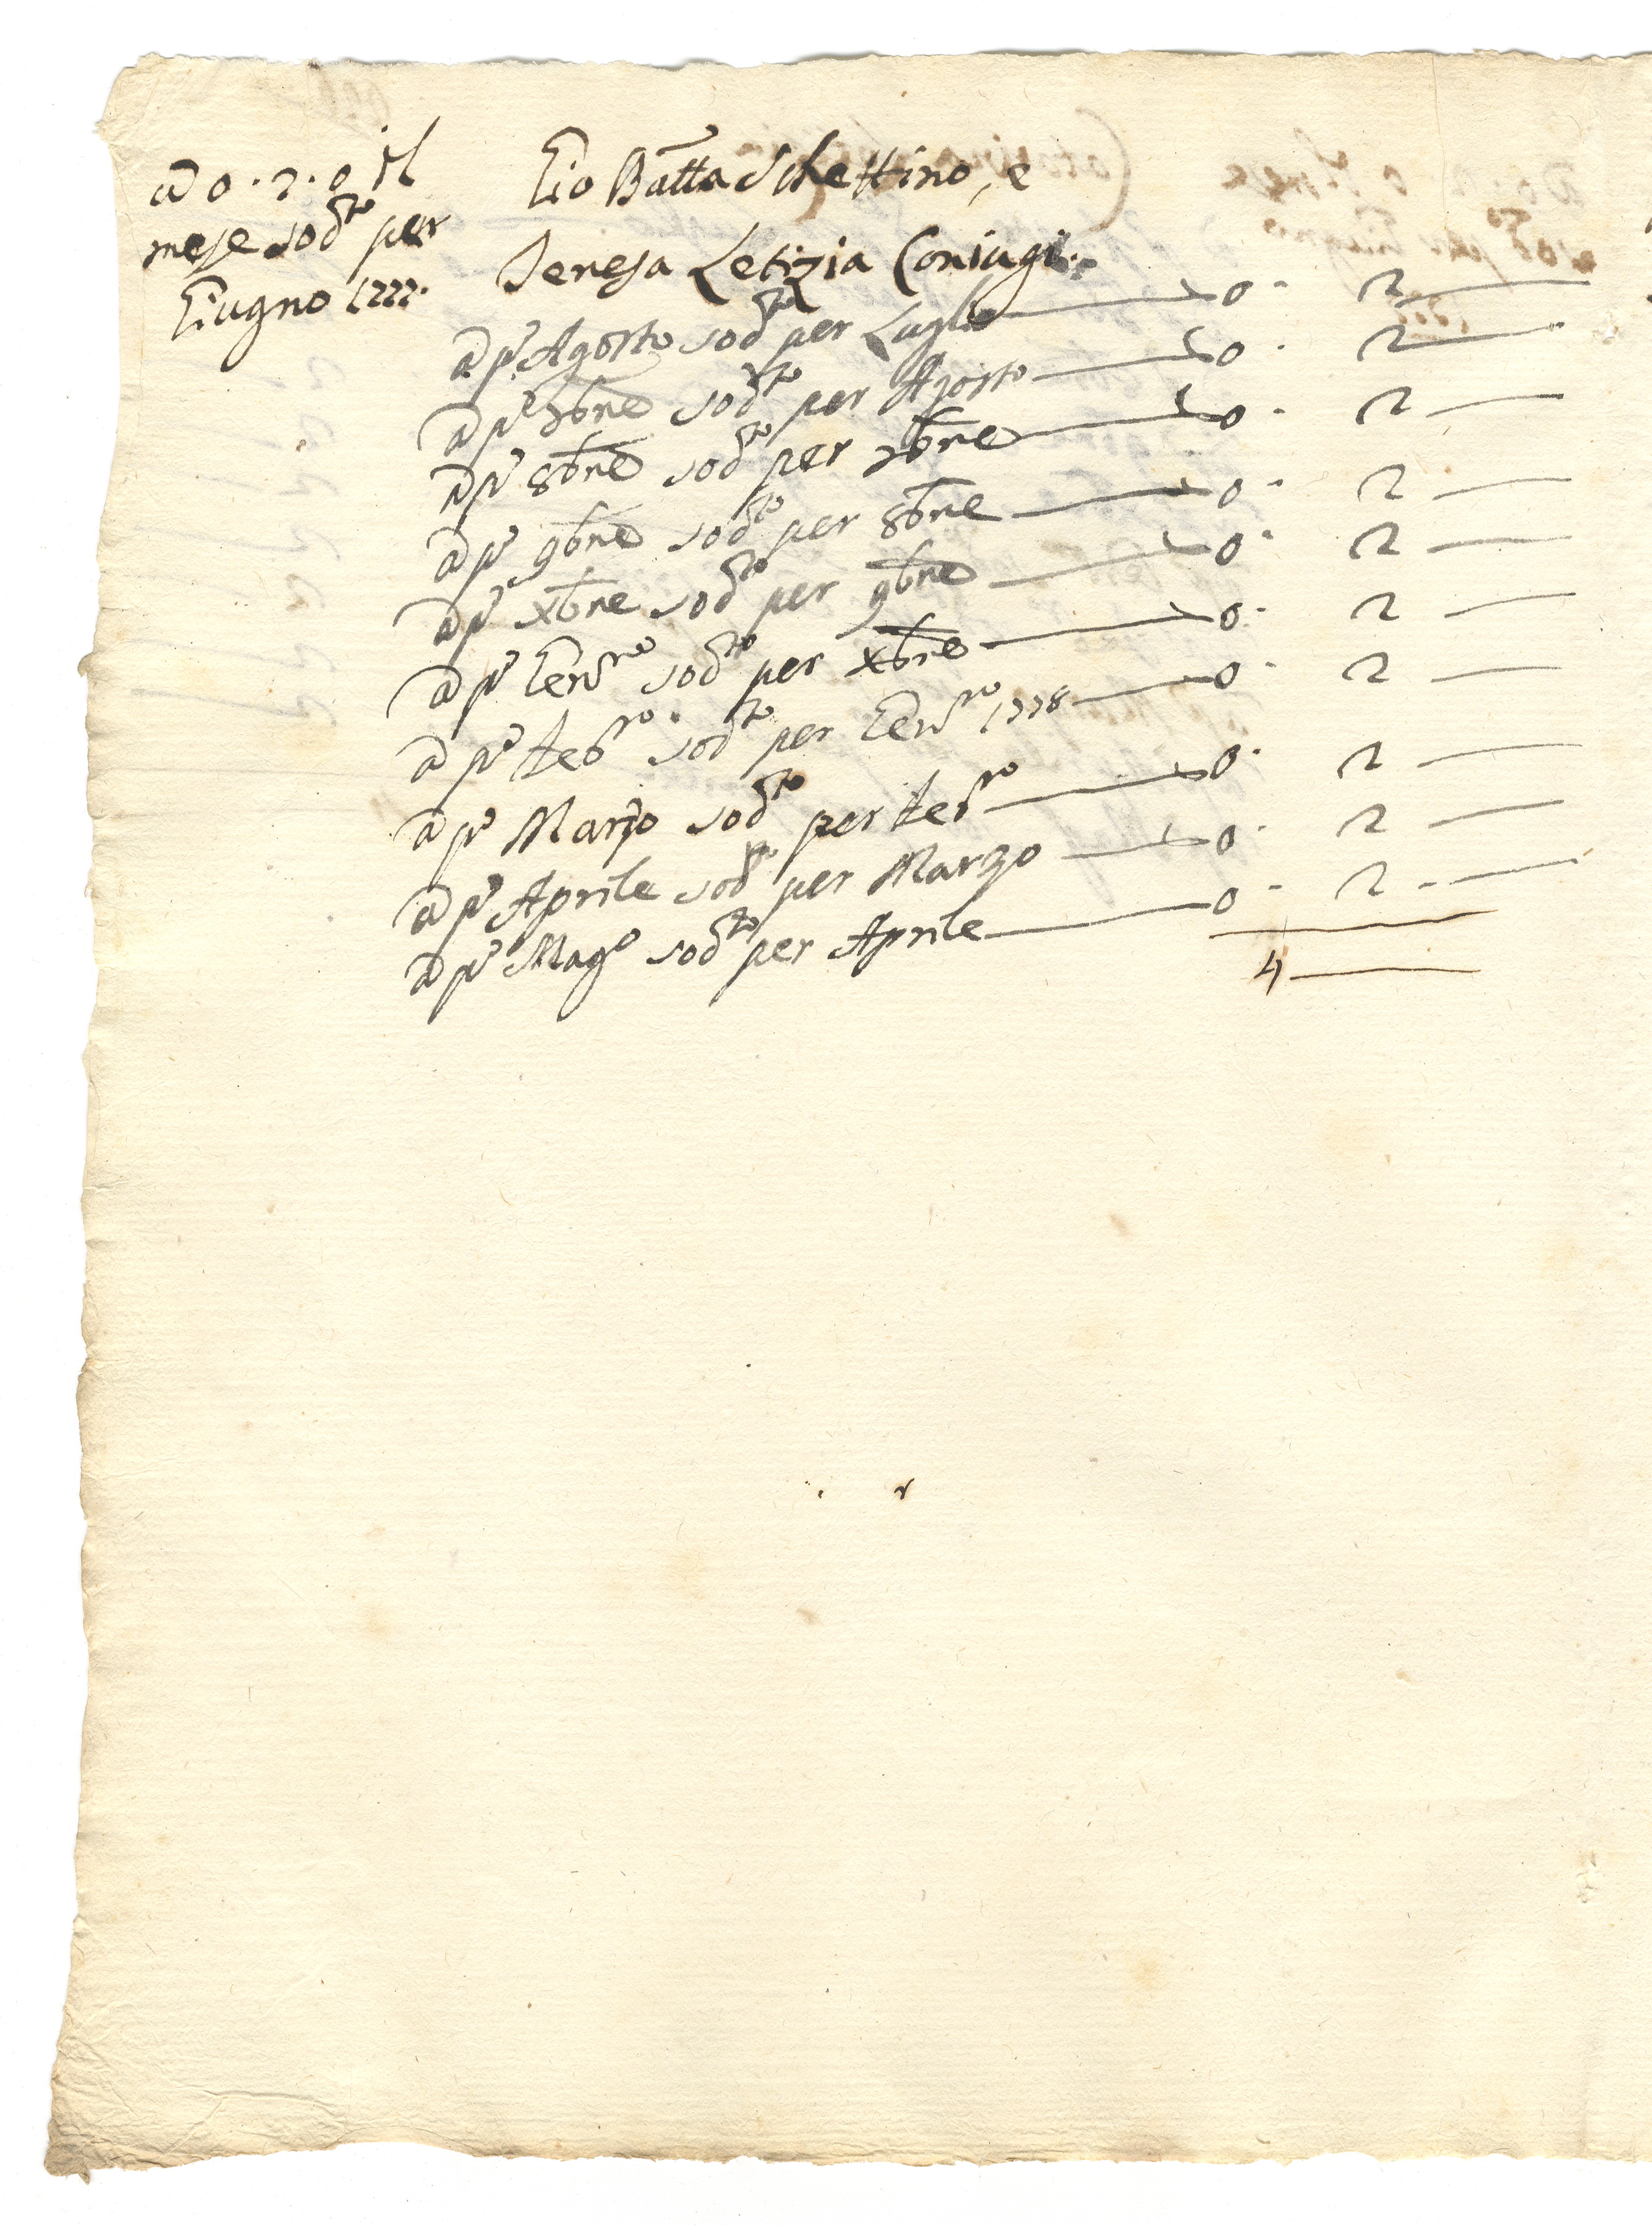 a 0.2.0 il
mese sod.to per
Giugno 1777.
Gio Batta Schettino, e
Teresa Letizia Coniugi.
a p.o Agosto sod.to per Luglio — 0. 2 —
a p.o 7bre sod.to per Agosto — 0. 2 —
a p.o 8bre sod.to per 7bre — 0. 2 —
a p.o 9bre sod.to per 8bre — 0. 2 —
a p.o xbre sod.to per 9bre — 0. 2 —
a p.o Gen.ro sod.to per xbre — 0. 2 —
a p.o feb.ro sod.to per Gen.ro 1778 — 0. 2 —
a p.o Marzo sod.to per feb.ro — 0. 2 —
a p.o Aprile sod.to per Marzo — 0. 2 —
a p.o Mag.o sod.to per Aprile — 0. 2. —
4 —